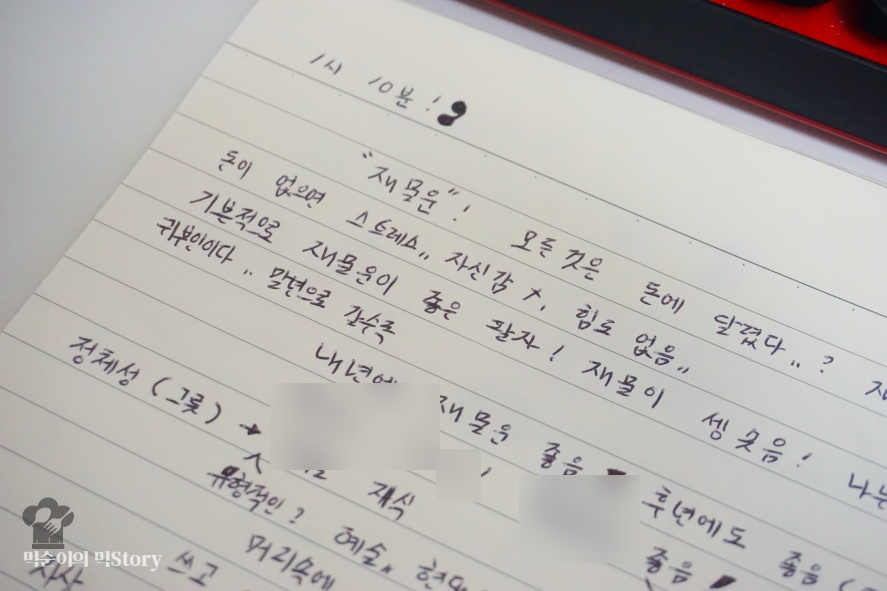 1시 10분!
"재물운"! 모든 것은 돈에 달렸다..?
돈이 없으면 스트레스.. 자신감 X, 힘도 없음..
기본적으로 재물운이 좋은 팔자! 재물이 솟음! 나는
귀부인이다.. 말년으로 갈수록
내년에 재물운 좋음 후년에도 좋음
정체성 (그릇) →
재식 좋음
무형적인? 예술,
쓰고 머리속에
먹순이의 먹Story